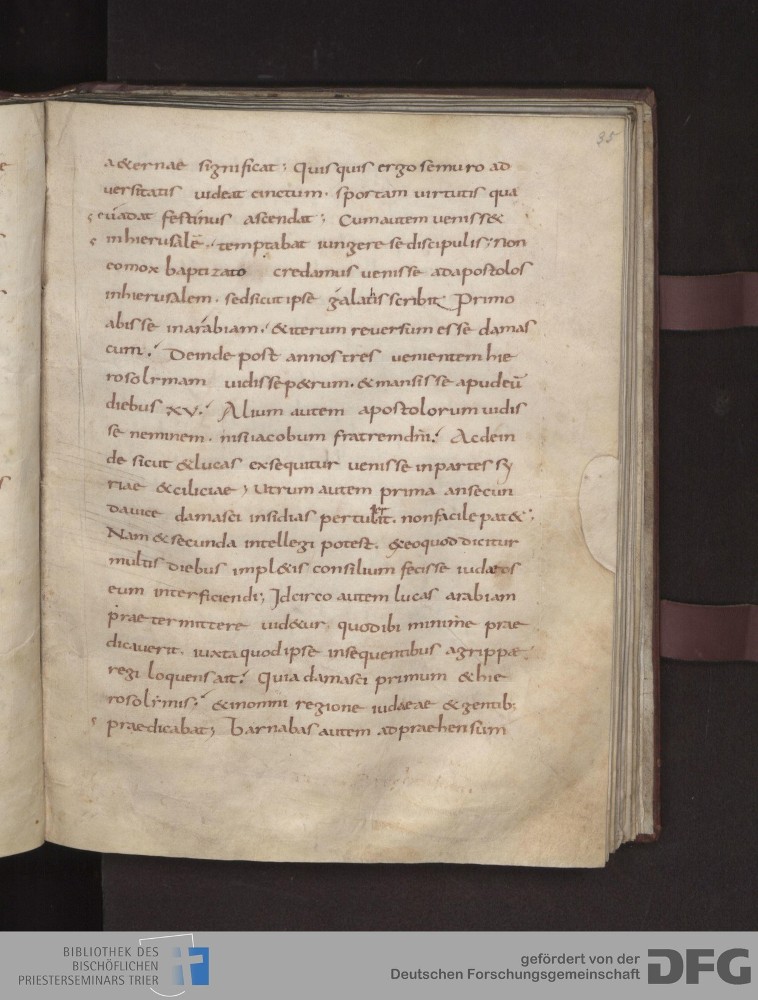 35
a&ernae significat; Quisquis ergo semuro ad
versitatis videat cinctum. sportam virtutis qua
evadat festinus ascendat; Cumautem veniss&
inhierusalē. temptabat iungere se discipulis; non
eomox baptizato credamus venisse adapostolos
inhierusalem. sedsicutipse galatis scribit; Primo
abisse inarabiam. &iterum reversum esse damas
cum. Deinde post annos tres venientem hie
rosolimam vidisse p&rum. &mansisse apudeū
diebus xv. Alium autem apostolorum vidis
se neminem. nisi iacobum fratrem dn̄i. Ac dein
de sicut &lucas exsequitur venisse inpartes sy
riae &ciliciae; Utrum autem prima ansecun
da vice damasci insidias pertulerit. nonfacile pat&;
Nam &secunda intellegi potest. &eoquod dicitur
multis diebus impl&is consilium fecisse iudaeos
eum interficiendi; Idcirco autem lucas arabiam
praetermittere vid&ur. quodibi minime prae
dicaverit. iuxta quod ipse insequentibus agrippae
regi loquens ait. Quia damasci primum &hie
rosolimis. &inomni regione iudaeae &gentib;
praedicabat; Barnabas autem adpraehensum
BIBLIOTHEK DES
BISCHÖFLICHEN
PRIESTERSEMINARS TRIER
gefördert von der
Deutschen Forschungsgemeinschaft
DFG